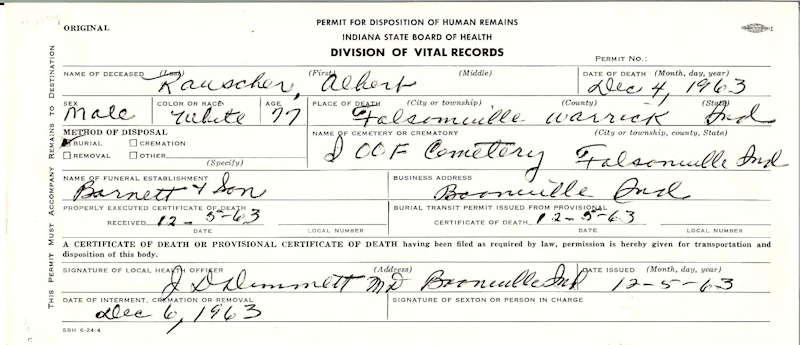 ORIGINAL
PERMIT FOR DISPOSITION OF HUMAN REMAINS
INDIANA STATE BOARD OF HEALTH
DIVISION OF VITAL RECORDS
PERMIT NO.:
THIS PERMIT MUST ACCOMPANY REMAINS TO DESTINATION
NAME OF DECEASED (Last) (First) (Middle)
Rauscher, Albert
DATE OF DEATH (Month, day, year)
Dec 4, 1963
SEX
Male
COLOR OR RACE
White
AGE
77
PLACE OF DEATH (City or township) (County) (State)
Folsomville Warrick Ind
METHOD OF DISPOSAL
BURIAL CREMATION
REMOVAL OTHER
(Specify)
NAME OF CEMETERY OR CREMATORY (City or township, county, State)
I OOF Cemetery Folsomville Ind
NAME OF FUNERAL ESTABLISHMENT
Barnett & Son
BUSINESS ADDRESS
Boonville Ind
PROPERLY EXECUTED CERTIFICATE OF DEATH
RECEIVED 12-5-63
DATE LOCAL NUMBER
BURIAL TRANSIT PERMIT ISSUED FROM PROVISIONAL
CERTIFICATE OF DEATH 12-5-63
DATE LOCAL NUMBER
A CERTIFICATE OF DEATH OR PROVISIONAL CERTIFICATE OF DEATH having been filed as required by law, permission is hereby given for transportation and
disposition of this body.
SIGNATURE OF LOCAL HEALTH OFFICER (Address)
J D Dimmett MD Boonville Ind
DATE ISSUED (Month, day, year)
12-5-63
DATE OF INTERMENT, CREMATION OR REMOVAL
Dec 6, 1963
SIGNATURE OF SEXTON OR PERSON IN CHARGE
SBH 6-24-4